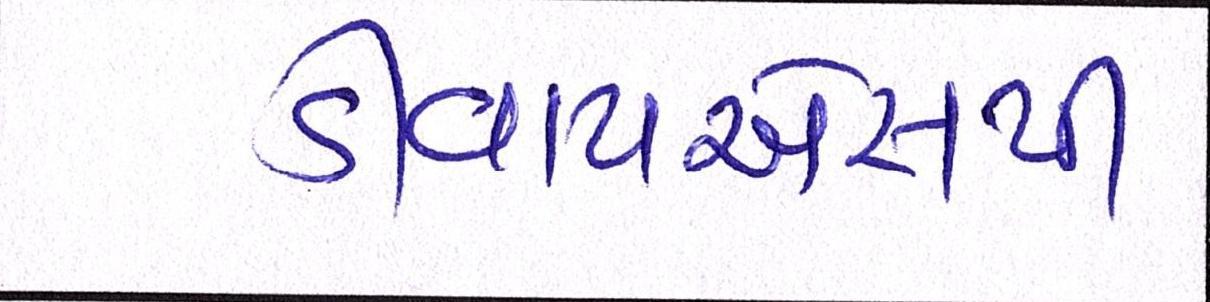 ડીવાયએસપી